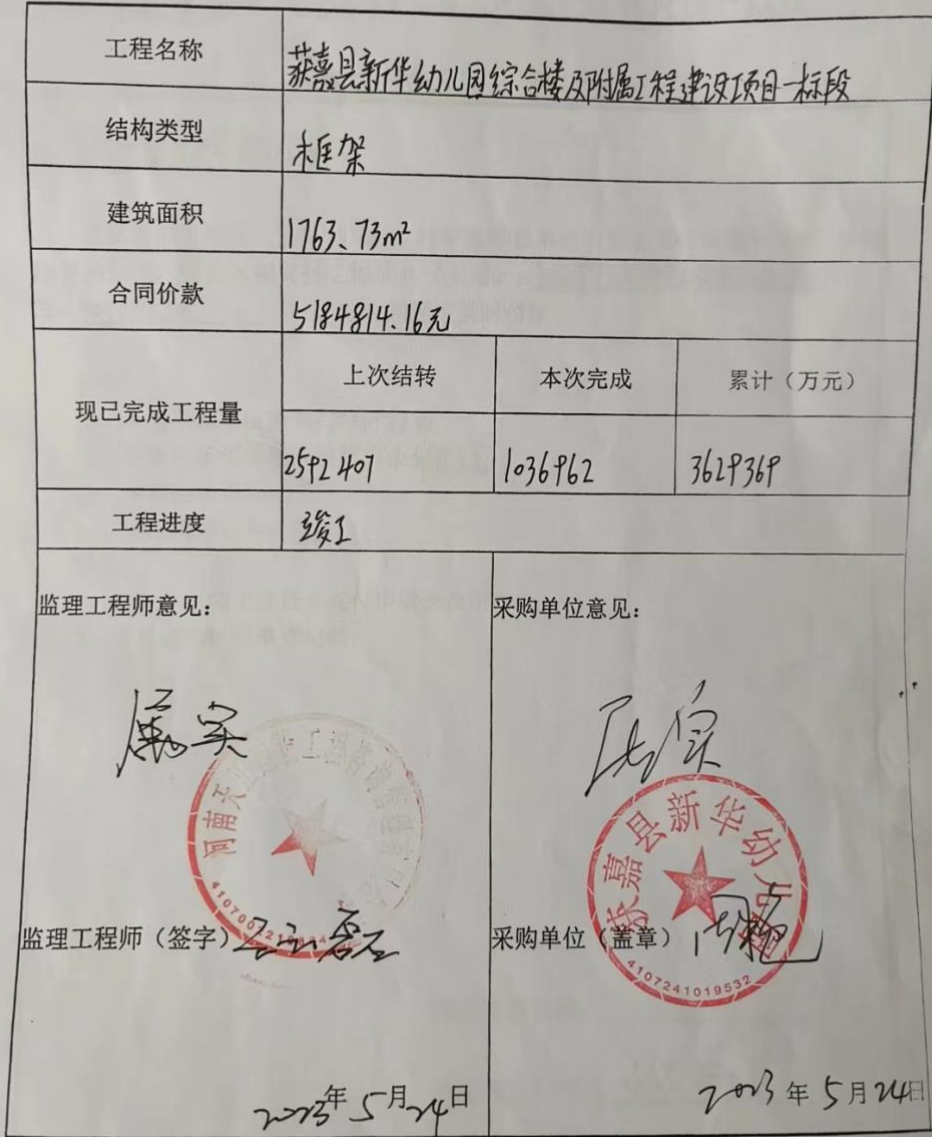 工程名称
获嘉县新华幼儿园综合楼及附属工程建设项目一标段
结构类型
框架
建筑面积
1763、73m²
合同价款
5184814.16元
现已完成工程量
上次结转
本次完成
累计（万元）
2592407
1036962
3629369
工程进度
竣工
监理工程师意见：
属实
河南天
工程
410700
监理工程师（签字）
2023年5月24日
采购单位意见：
属实
获嘉县新华幼儿园
采购单位（盖章）
4107241019532
2023年5月24日